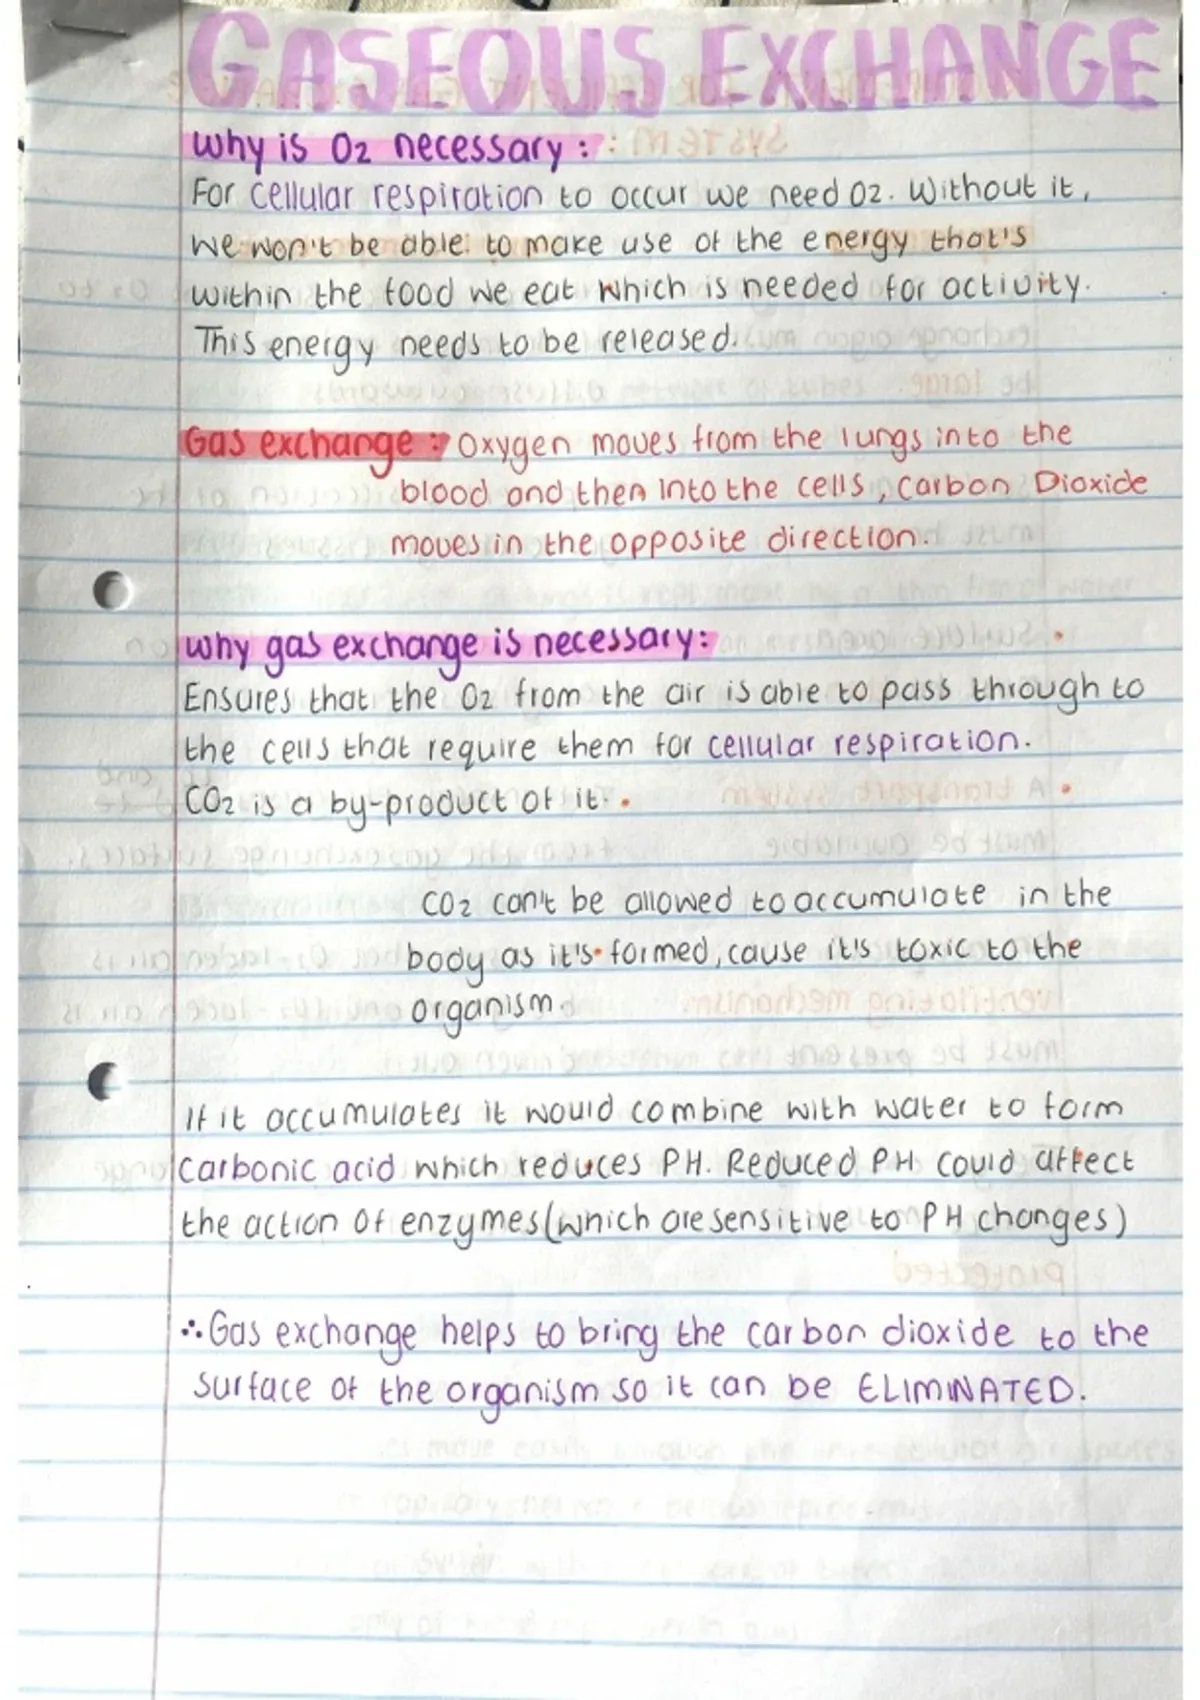 GASEOUS EXCHANGE
why is O2 necessary :
For cellular respiration to occur we need O2. Without it,
we won't be able to make use of the energy that's
within the food we eat which is needed for activity.
This energy needs to be released.
Gas exchange : Oxygen moves from the lungs into the
blood and then into the cells, Carbon Dioxide
moves in the opposite direction.
why gas exchange is necessary:
Ensures that the O2 from the air is able to pass through to
the cells that require them for cellular respiration.
CO2 is a by-product of it.
CO2 can't be allowed to accumulate in the
body as it's formed, cause it's toxic to the
organism.
If it accumulates it would combine with water to form
carbonic acid which reduces PH. Reduced PH could affect
the action of enzymes (which are sensitive to PH changes)
∴ Gas exchange helps to bring the carbon dioxide to the
surface of the organism so it can be ELIMINATED.